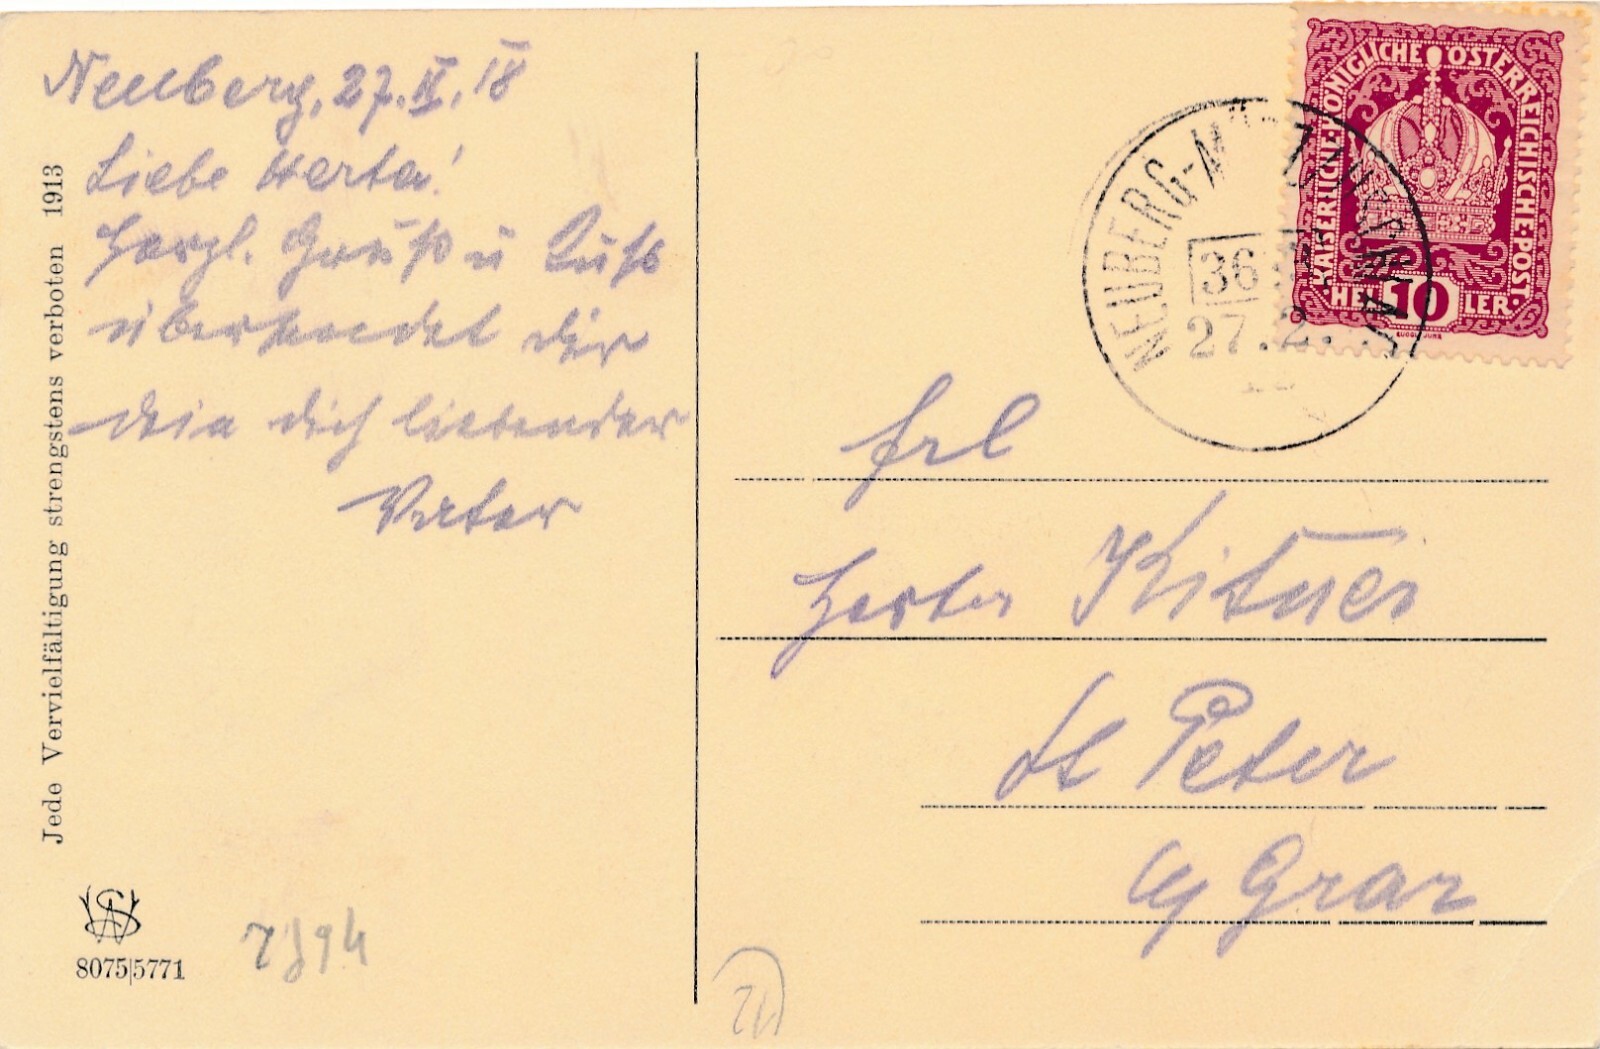 Neuberg, 27. II. 18
Liebe Herta!
Herzl. Gruß u Kuß
übersendet dir
dein dich liebender
Vater
Jede Vervielfältigung strengstens verboten 1913
8075|5771
KAISERLICHE·KÖNIGLICHE ÖSTERREICHISCHE·POST·
HEL 10 LER
NEUBERG-M
36
27.2.
Frl
Herta
St Peter
b/ Graz